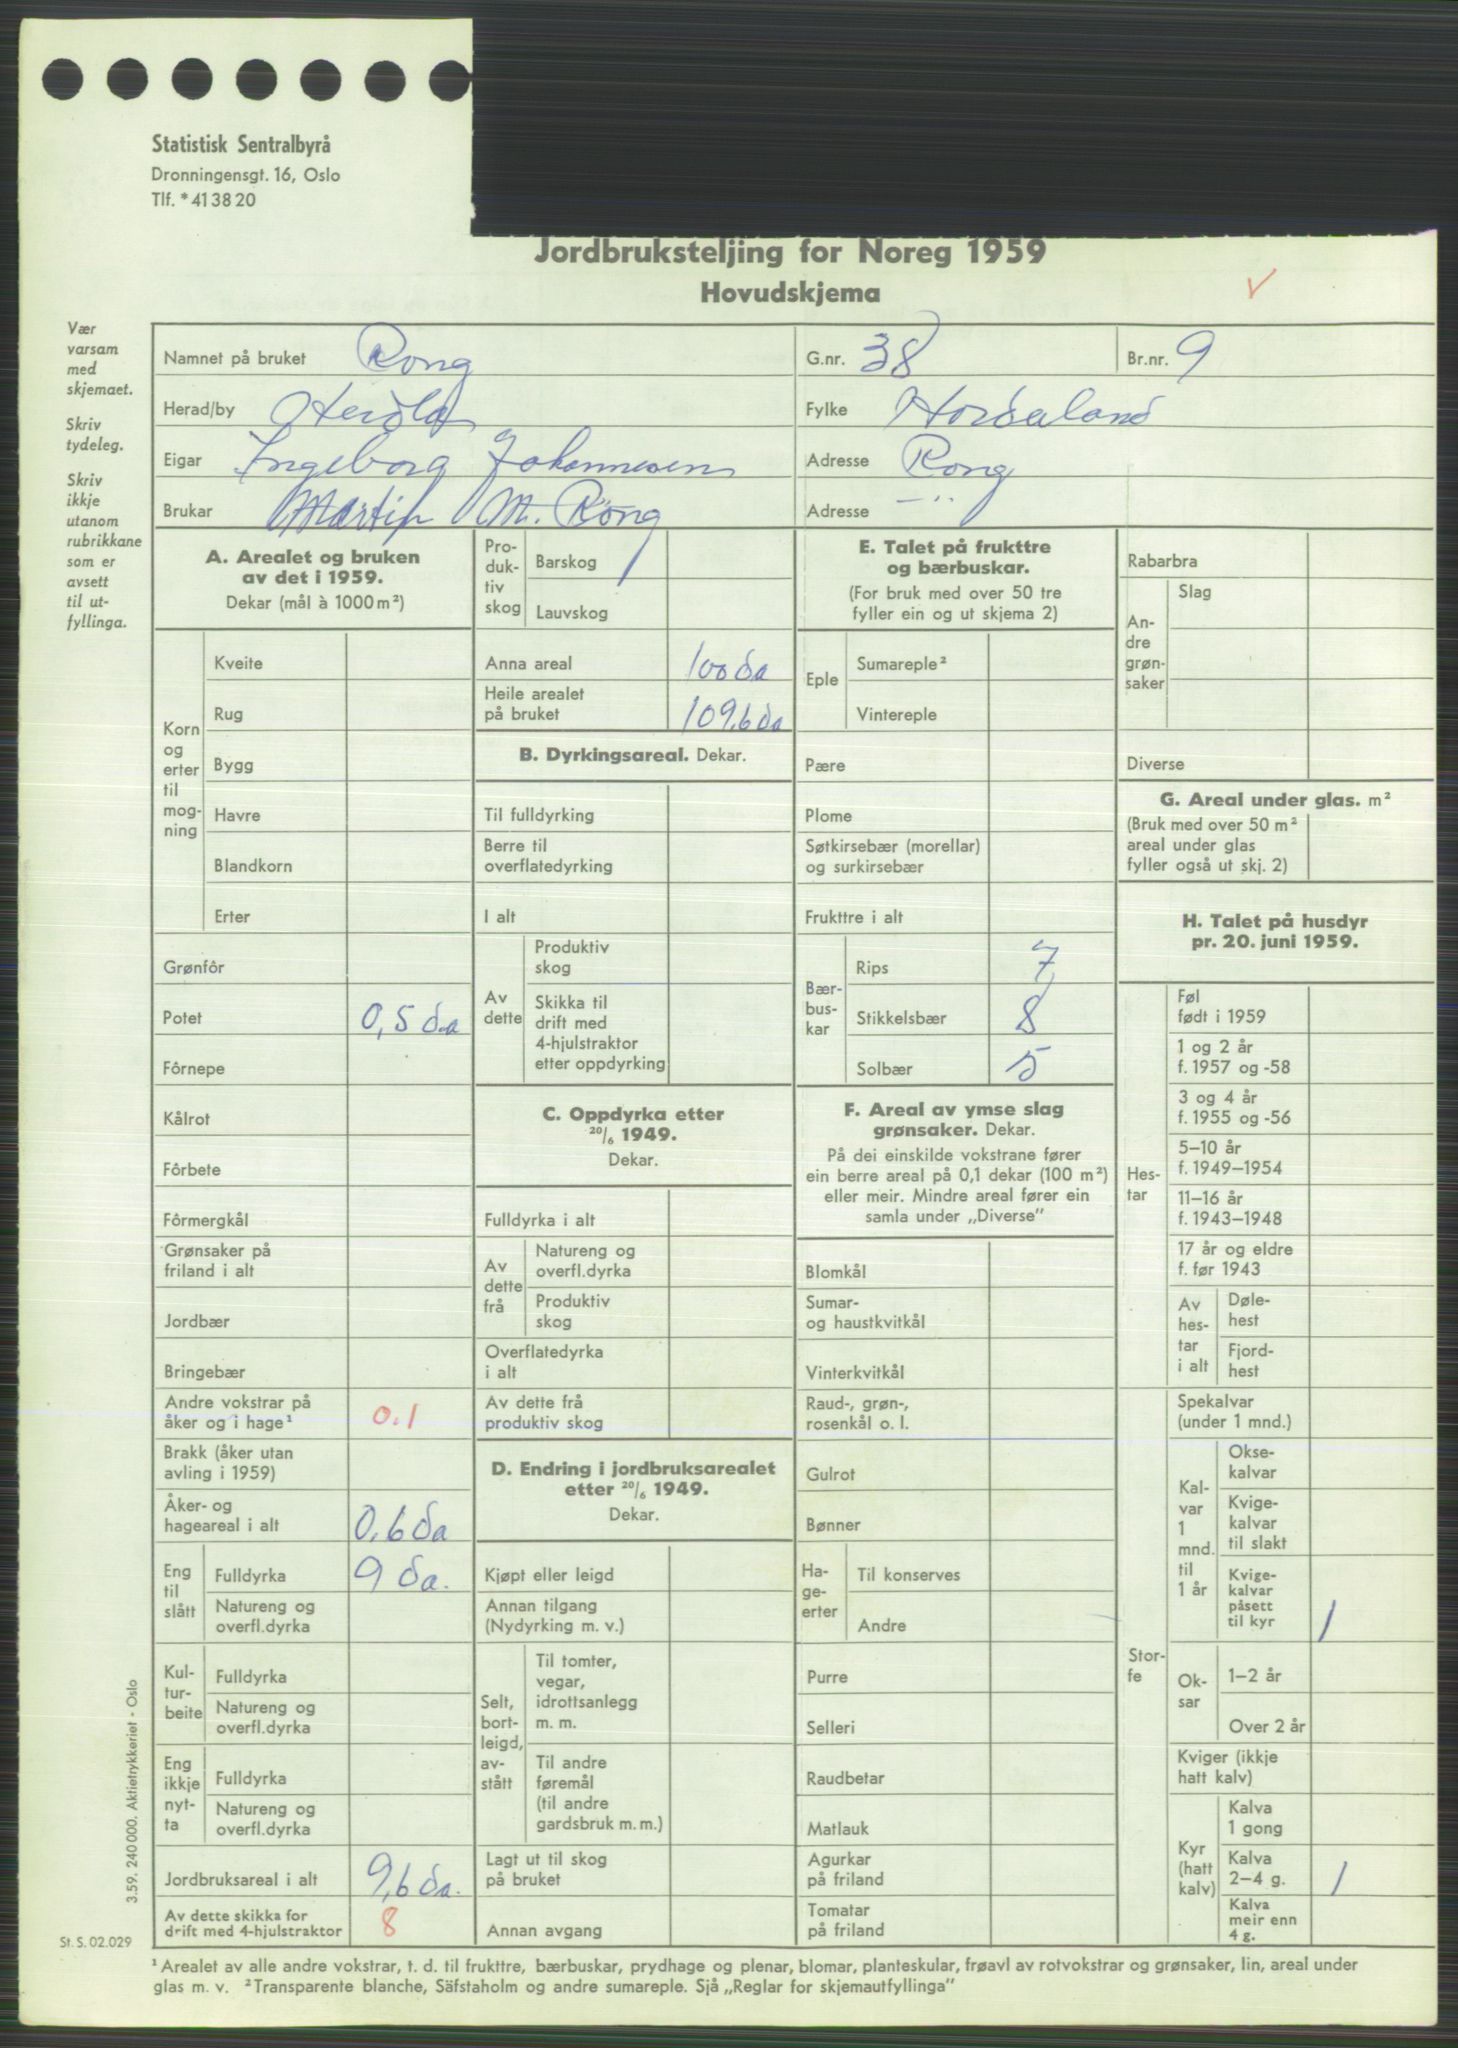 Statistisk Sentralbyrå
Dronningensgt. 16, Oslo
Tlf. * 41 38 20
Jordbruksteljing for Noreg 1959
Hovudskjema
Vær
varsam
med
skjemaet.
Skriv
tydeleg.
Skriv
ikkje
utanom
rubrikkane
som er
avsett
til ut-
fyllinga.
Namnet på bruket Rong G.nr. 38 Br.nr. 9
Herad/by Herdla Fylke Hordaland
Eigar Ingeborg Johannesen Adresse Rong
Brukar Martin M. Rong Adresse — " —
A. Arealet og bruken
av det i 1959.
Dekar (mål à 1000 m²)
Korn
og
erter
til
mog-
ning
Kveite
Rug
Bygg
Havre
Blandkorn
Erter
Grønfôr
Potet 0,5 da
Fôrnepe
Kålrot
Fôrbete
Fôrmergkål
Grønsaker på
friland i alt
Jordbær
Bringebær
Andre vokstrar på
åker og i hage¹ 0.1
Brakk (åker utan
avling i 1959)
Åker- og
hageareal i alt 0,6 da
Eng
til
slått
Fulldyrka 9 da.
Natureng og
overfl.dyrka
Kul-
tur-
beite
Fulldyrka
Natureng og
overfl.dyrka
Eng
ikkje
nyt-
ta
Fulldyrka
Natureng og
overfl.dyrka
Jordbruksareal i alt 9,6 da.
Av dette skikka for
drift med 4-hjulstraktor 8
Pro-
duk-
tiv
skog
Barskog
Lauvskog
Anna areal 100 da
Heile arealet
på bruket 109,6 da
B. Dyrkingsareal. Dekar.
Til fulldyrking
Berre til
overflatedyrking
I alt
Av
dette
Produktiv
skog
Skikka til
drift med
4-hjulstraktor
etter oppdyrking
C. Oppdyrka etter
20/6 1949.
Dekar.
Fulldyrka i alt
Av
dette
frå
Natureng og
overfl.dyrka
Produktiv
skog
Overflatedyrka
i alt
Av dette frå
produktiv skog
D. Endring i jordbruksarealet
etter 20/6 1949.
Dekar.
Kjøpt eller leigd
Annan tilgang
(Nydyrking m. v.)
Selt,
bort-
leigd,
av-
stått
Til tomter,
vegar,
idrottsanlegg
m. m.
Til andre
føremål
(til andre
gardsbruk m. m.)
Lagt ut til skog
på bruket
Annan avgang
E. Talet på frukttre
og bærbuskar.
(For bruk med over 50 tre
fyller ein og ut skjema 2)
Eple
Sumareple²
Vintereple
Pære
Plome
Søtkirsebær (morellar)
og surkirsebær
Frukttre i alt
Bær-
bus-
kar
Rips 7
Stikkelsbær 8
Solbær 5
F. Areal av ymse slag
grønsaker. Dekar.
På dei einskilde vokstrane fører
ein berre areal på 0,1 dekar (100 m²)
eller meir. Mindre areal fører ein
samla under „Diverse”
Blomkål
Sumar-
og haustkvitkål
Vinterkvitkål
Raud-, grøn-,
rosenkål o. l.
Gulrot
Bønner
Ha-
ge-
erter
Til konserves
Andre
Purre
Selleri
Raudbetar
Matlauk
Agurkar
på friland
Tomatar
på friland
Rabarbra
An-
dre
grøn-
saker
Slag
Diverse
G. Areal under glas. m²
(Bruk med over 50 m²
areal under glas
fyller også ut skj. 2)
H. Talet på husdyr
pr. 20. juni 1959.
Hes-
tar
Føl
født i 1959
1 og 2 år
f. 1957 og -58
3 og 4 år
f. 1955 og -56
5–10 år
f. 1949–1954
11–16 år
f. 1943–1948
17 år og eldre
f. før 1943
Av
hes-
tar
i alt
Døle-
hest
Fjord-
hest
Stor-
fe
Spekalvar
(under 1 mnd.)
Kal-
var
1
mnd.
til
1 år
Okse-
kalvar
Kvige-
kalvar
til slakt
Kvige-
kalvar
påsett
til kyr 1
Ok-
sar
1–2 år
Over 2 år
Kviger (ikkje
hatt kalv)
Kyr
(hatt
kalv)
Kalva
1 gong
Kalva
2–4 g. 1
Kalva
meir enn
4 g.
3.59. 240 000. Aktietrykkeriet - Oslo
St. S. 02.029
¹ Arealet av alle andre vokstrar, t. d. til frukttre, bærbuskar, prydhage og plenar, blomar, planteskular, frøavl av rotvokstrar og grønsaker, lin, areal under
glas m. v. ² Transparente blanche, Säfstaholm og andre sumareple. Sjå „Reglar for skjemautfyllinga”